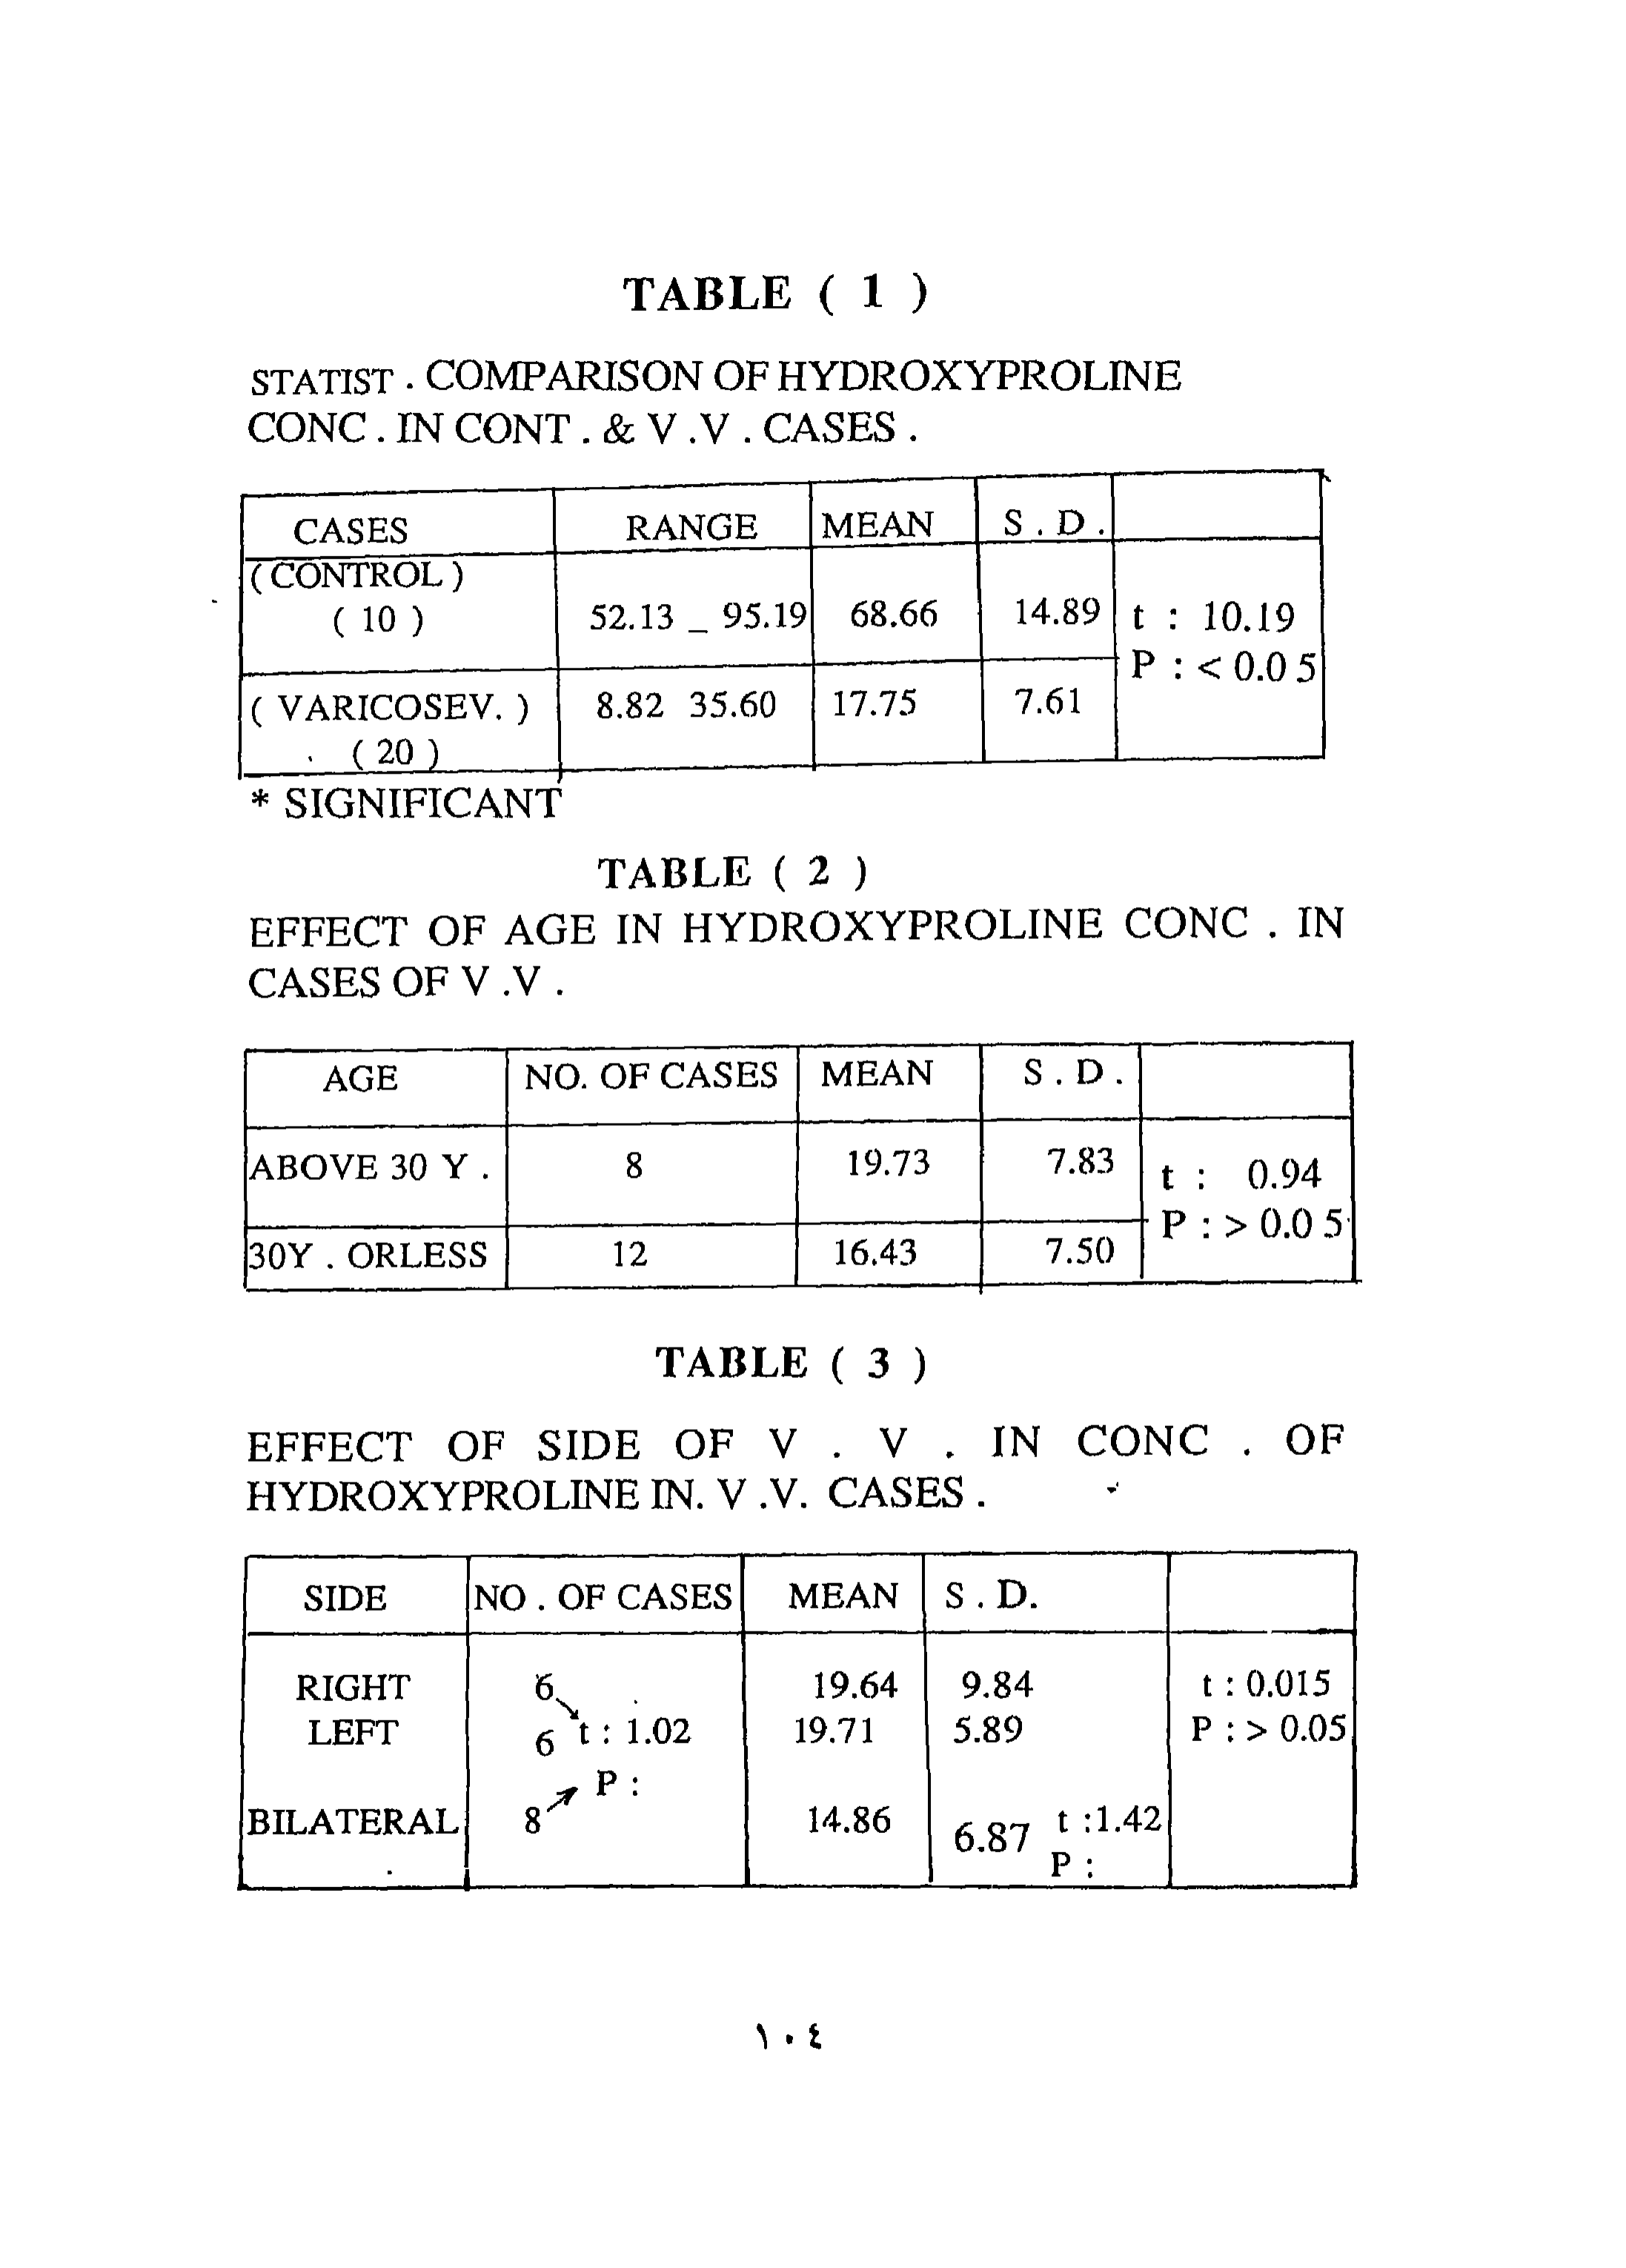 TABLE ( 1 )
STATIST . COMPARISON OF HYDROXYPROLINE
CONC . IN CONT . & V .V . CASES .
CASES RANGE MEAN S . D .
( CONTROL )
( 10 ) 52.13 _ 95.19 68.66 14.89 t : 10.19
P : < 0.0 5
( VARICOSEV. ) 8.82 35.60 17.75 7.61
( 20 )
* SIGNIFICANT
TABLE ( 2 )
EFFECT OF AGE IN HYDROXYPROLINE CONC . IN
CASES OF V .V .
AGE NO. OF CASES MEAN S . D .
ABOVE 30 Y . 8 19.73 7.83 t : 0.94
P : > 0.0 5
30Y . ORLESS 12 16.43 7.50
TABLE ( 3 )
EFFECT OF SIDE OF V . V . IN CONC . OF
HYDROXYPROLINE IN. V .V. CASES .
SIDE NO . OF CASES MEAN S . D.
RIGHT 6 19.64 9.84 t : 0.015
LEFT 6 t : 1.02 19.71 5.89 P : > 0.05
P :
BILATERAL 8 14.86 6.87 t :1.42
P :
١٠٤